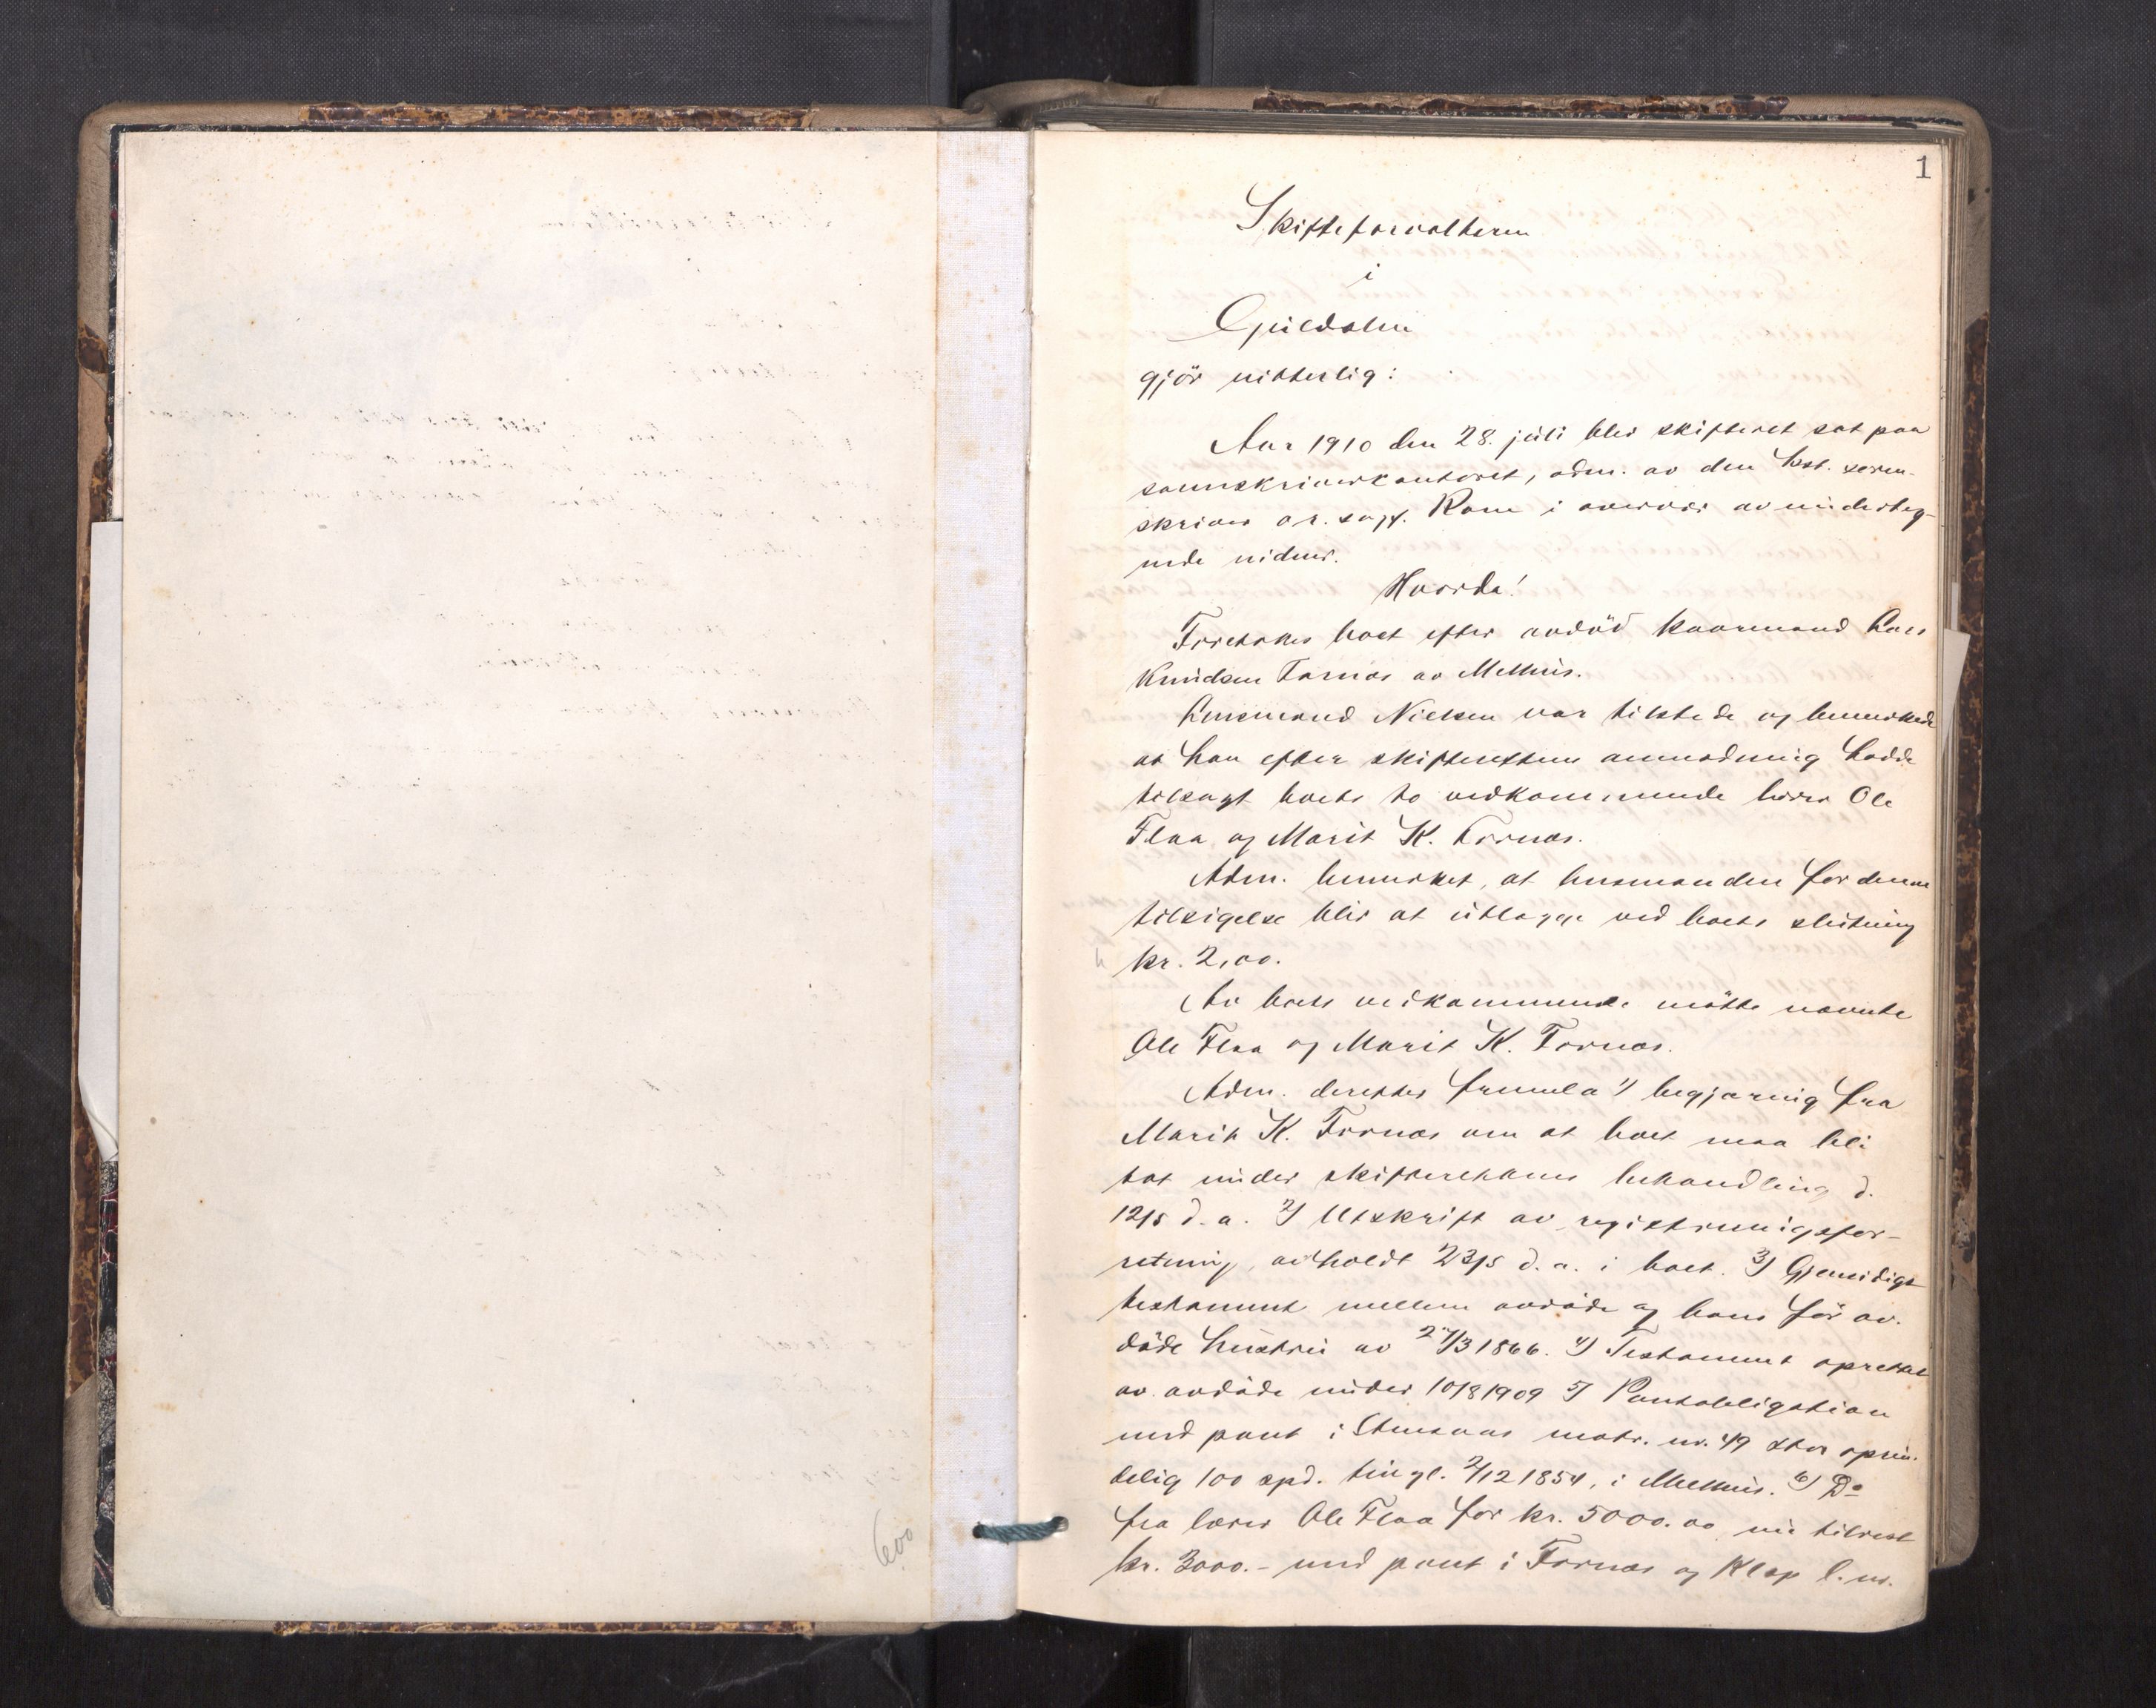 1
Skifteforvalteren
i
Guldalen
gjör vitterlig:
Aar 1910 den 28. juli blev skifteret sat paa
sorenskriverkontoret, adm. av den kst. soren-
skriver o.r.sagf. Rom i overvær av underteg-
nede vidner.
Hvorda!
Foretokes boet efter avdöd kaarmand Lars
Knudsen Fornæs av Melhus.
Lensmand Nielsen var tilstede og bemerkede
at han efter skifterettens anmodning hadde
tilsagt boets to vedkommende lærer Ole
Flaa og Marit K. Fornæs.
Adm. bemerket, at lensmanden for denne
tilsigelse blir at utlægge ved boets slutning
kr. 2,00.
Av boets vedkommende mötte nævnte
Ole Flaa og Marit K. Fornæs.
Adm. derefter fremla 1) begjæring fra
Marit K. Fornæs om at boet maa bli
tat under skifterettens behandling d.
12/5 d.a. 2) Utskrift av registreringsfor-
retning, avholdt 23/5 d.a. i boet. 3) Gjensidigt
testament mellem avdöde og hans för av-
döde hustru av 27/3 1866. 4) Testament oprettet
av avdöde under 10/8 1909 5) Pantobligation
med pant i Stensaas matr. nr. 49 stor oprin-
delig 100 spd. tingl. 2/12 1854, i Melhus. 6) Do
fra lærer Ole Flaa for kr. 5000.00 nu tilrest
kr. 3000.- med pant i Fornæs og Klop l.nr.
600